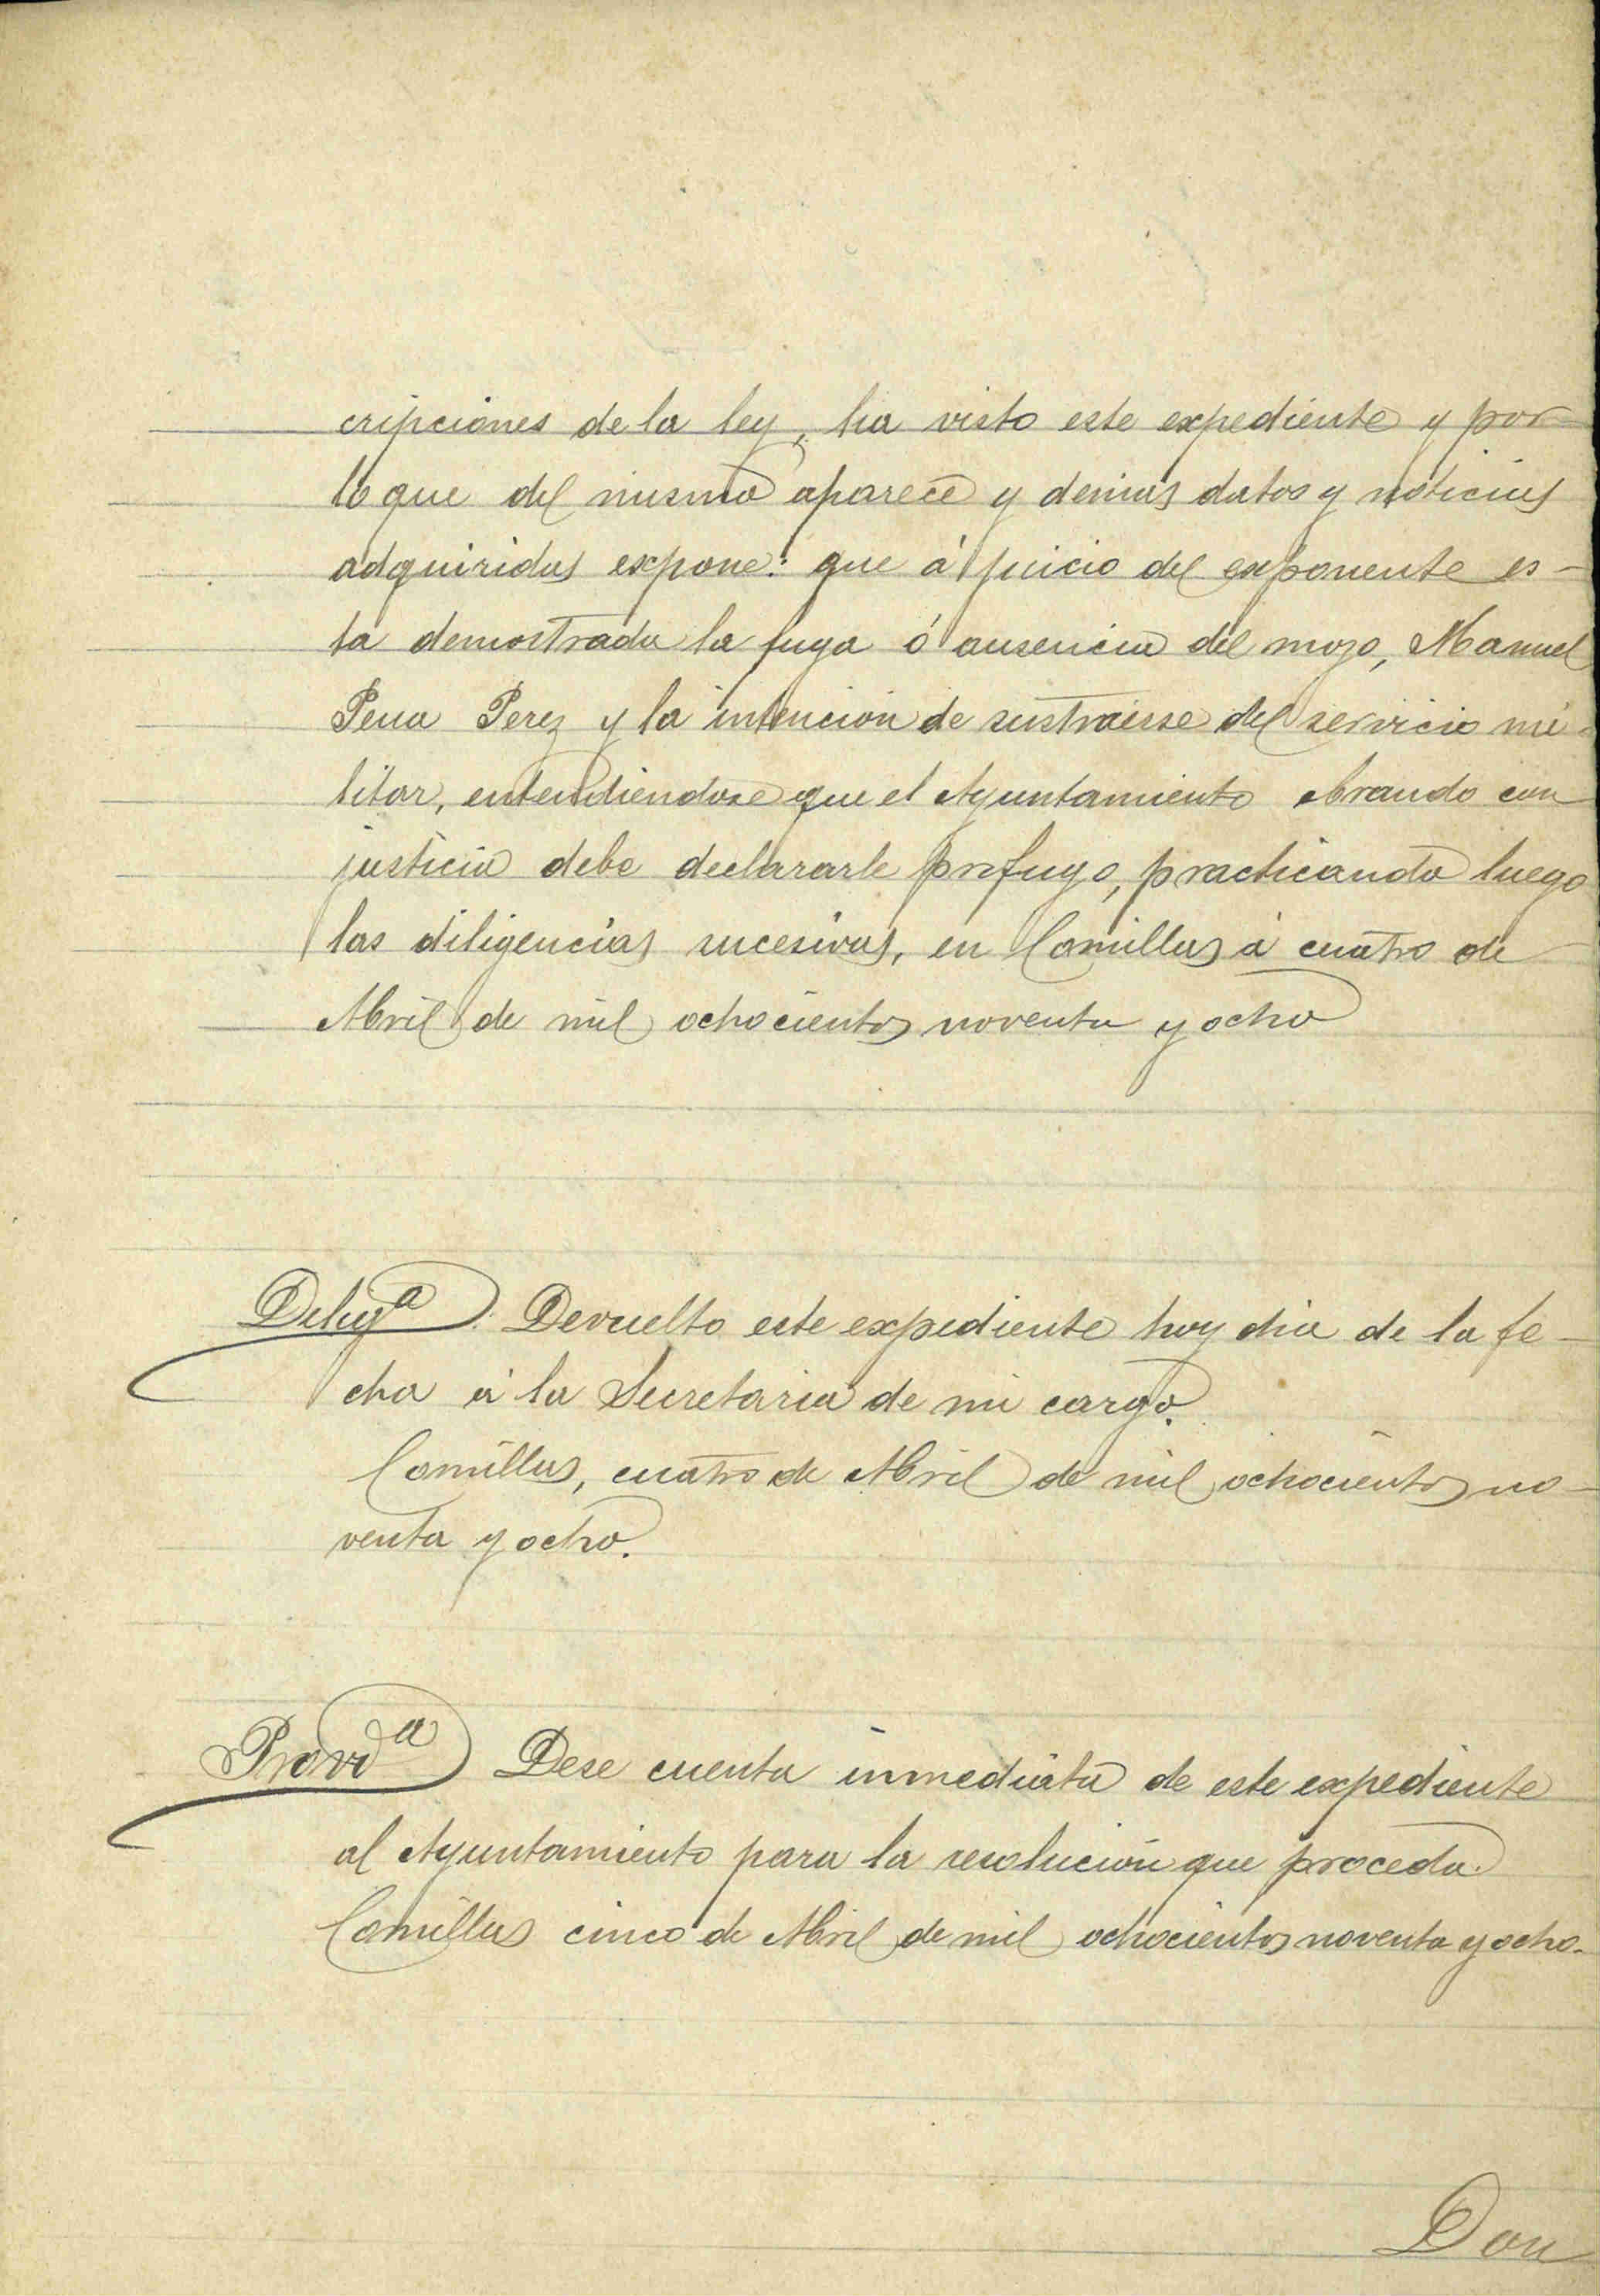 cripciones de la ley, ha visto este expediente y por
lo que del mismo aparece y demas datos y noticias
adquiridas expone: que á juicio del exponente es-
ta demostrada la fuga ó ausencia del mozo, Manuel
Pena Perez y la intencion de sustraerse del servicio mi-
litar, entendiendose que el Ayuntamiento obrando con
justicia debe declararle profugo, practicando luego
las diligencias sucesivas, en Comillas á cuatro de
Abril de mil ochocientos noventa y ocho
Delig.ª Devuelto este expediente hoy dia de la fe-
cha á la Secretaria de mi cargo.
Comillas, cuatro de Abril de mil ochocientos no-
venta y ocho.
Provdª Dese cuenta inmediata de este expediente
al Ayuntamiento para la resolucion que proceda.
Comillas cinco de Abril de mil ochocientos noventa y ocho.
Don